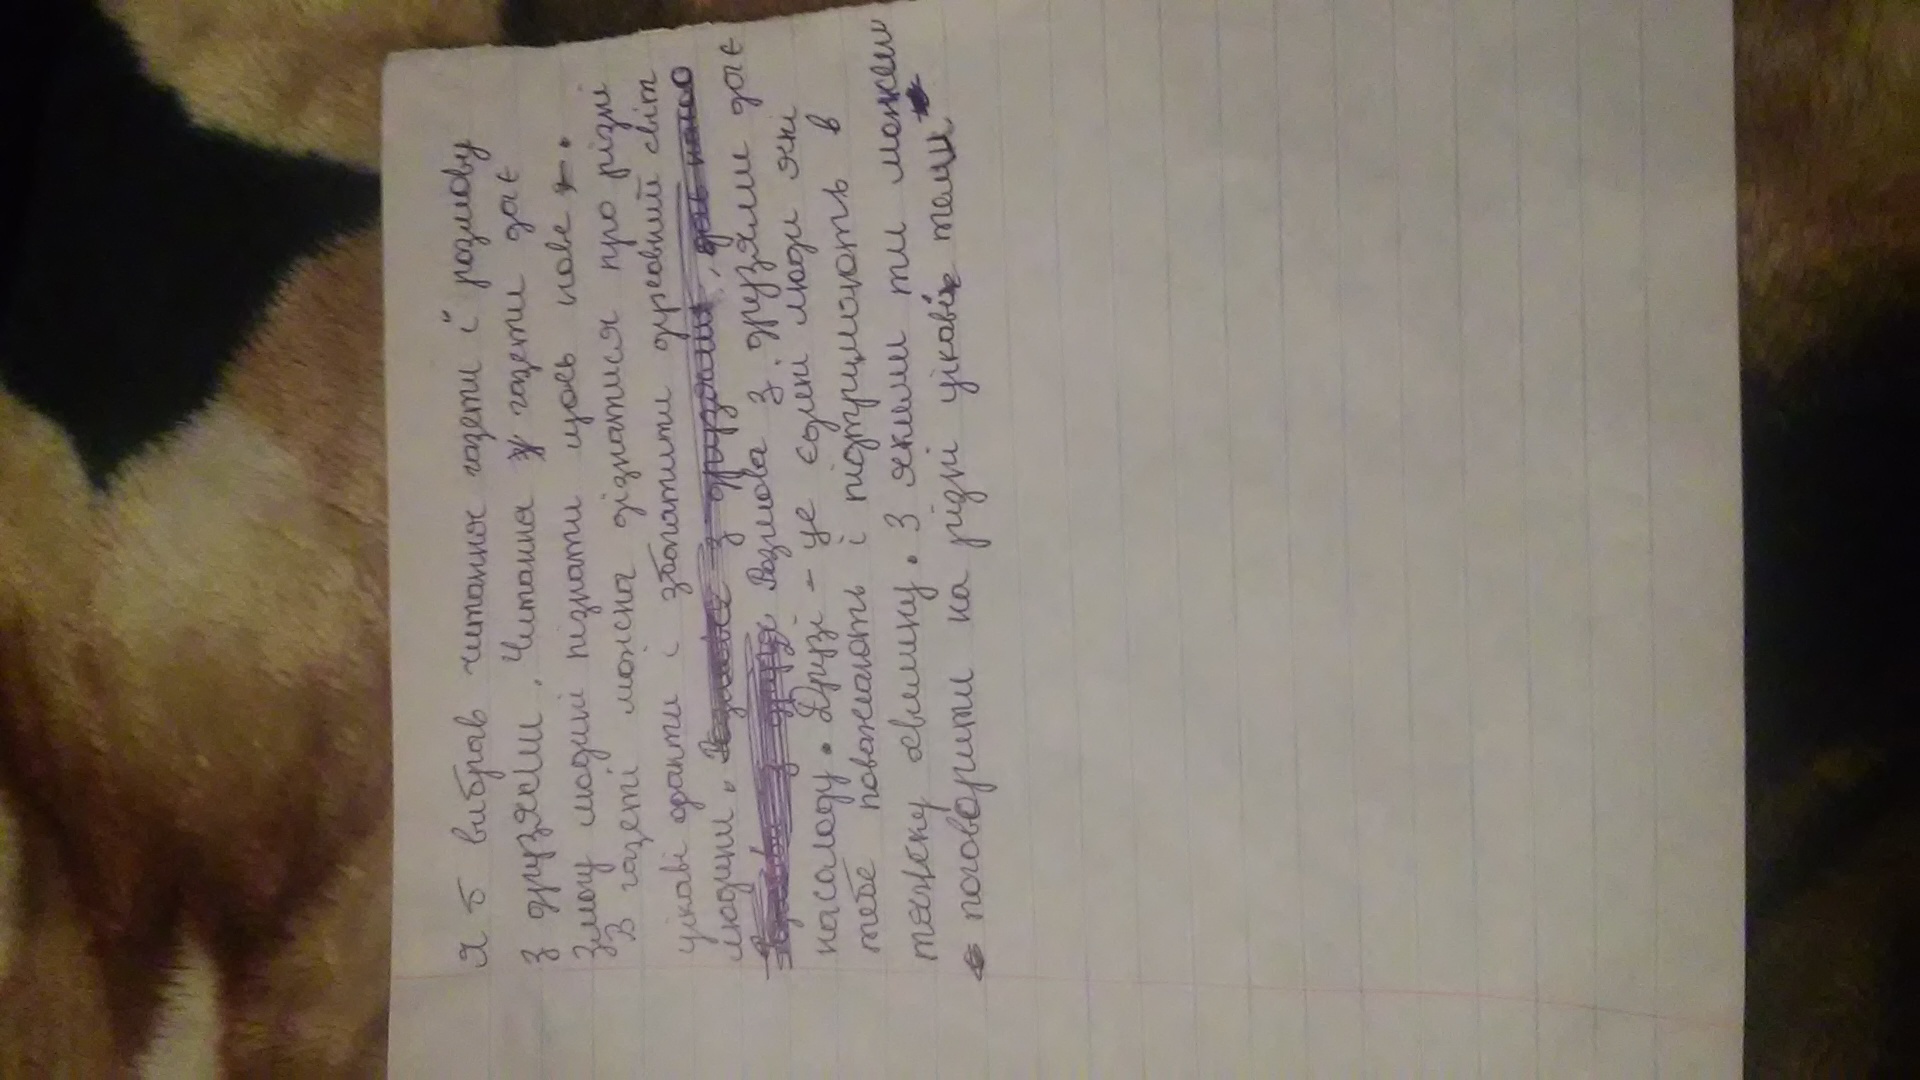 Я б вибрав читання газети і розмову
з друзями. Читання газети дає
змогу людині пізнати щось нове.
В газеті можна дізнатися про різні
цікаві факти і збагатити духовний світ
людини.
Розмова з друзями дає
насолоду. Друзі - це єдині люди які
тебе поважають і підтримують в
тяжку хвилину. З якими ти можеш
поговорити на різні цікаві теми